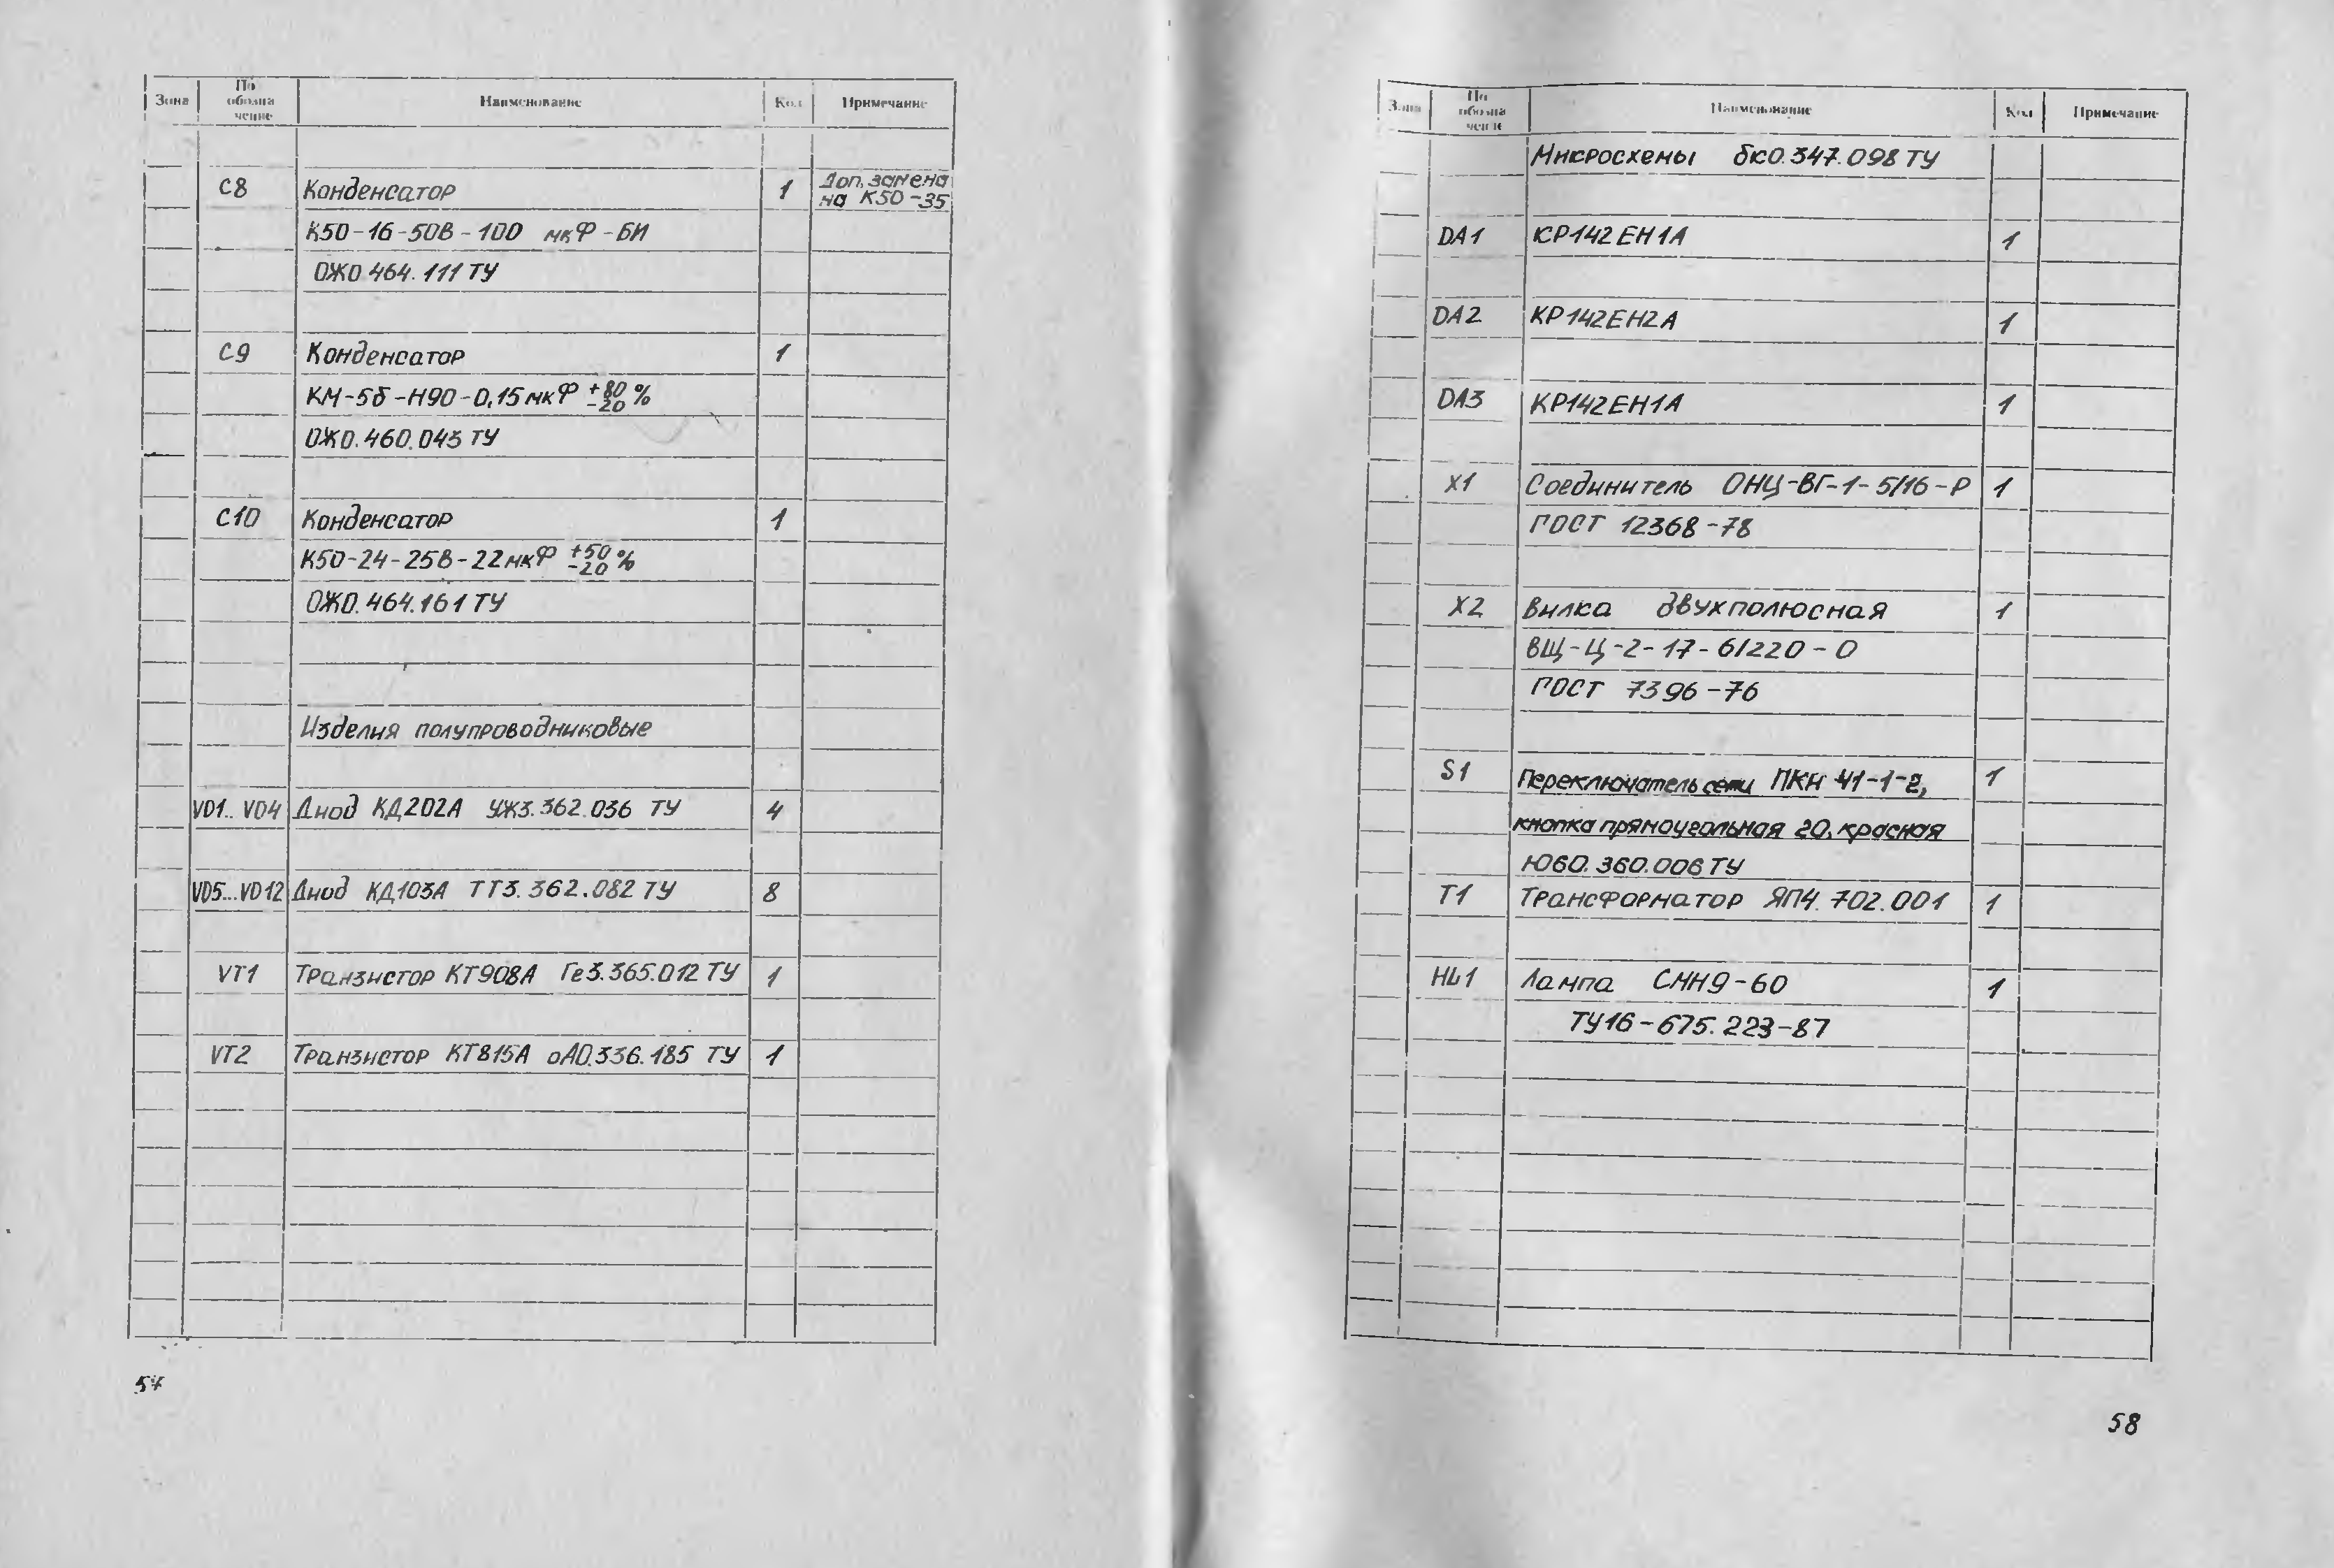 Зона По обозна чение Наименование Кол Примечание
С8 Конденсатор 1 Доп. замена на К50-35
К50-16-50В-100 мкФ-БИ
ОЖ0.464.111 ТУ
С9 Конденсатор 1
КМ-5б-Н90-0,15мкФ +80 -20 %
ОЖ0.460.043 ТУ
С10 Конденсатор 1
К50-24-25В-22мкФ +50 -20 %
ОЖ0.464.161 ТУ
Изделия полупроводниковые
VD1.. VD4 Диод КД202А УЖ3.362.036 ТУ 4
VD5...VD12 Диод КД103А ТТ3.362.082 ТУ 8
VT1 Транзистор КТ908А Ге3.365.012 ТУ 1
VT2 Транзистор КТ815А аА0.336.185 ТУ 1
57
Зона По обозна чение Наименование Кол Примечание
Микросхемы бК0.347.098 ТУ
DA1 КР142ЕН1А 1
DA2 КР142ЕН2А 1
DA3 КР142ЕН1А 1
X1 Соединитель ОНЦ-ВГ-1-5/16-Р 1
ГОСТ 12368-78
X2 Вилка двухполюсная 1
ВЩ-Ц-2-17-6/220-0
ГОСТ 7396-76
S1 Переключатель сети ПКН 41-1-2, 1
кнопка прямоугольная 20, красная
Ю60.360.006 ТУ
T1 Трансформатор ЯП4.702.001 1
HL1 Лампа СМН9-60 1
ТУ16-675.223-87
58